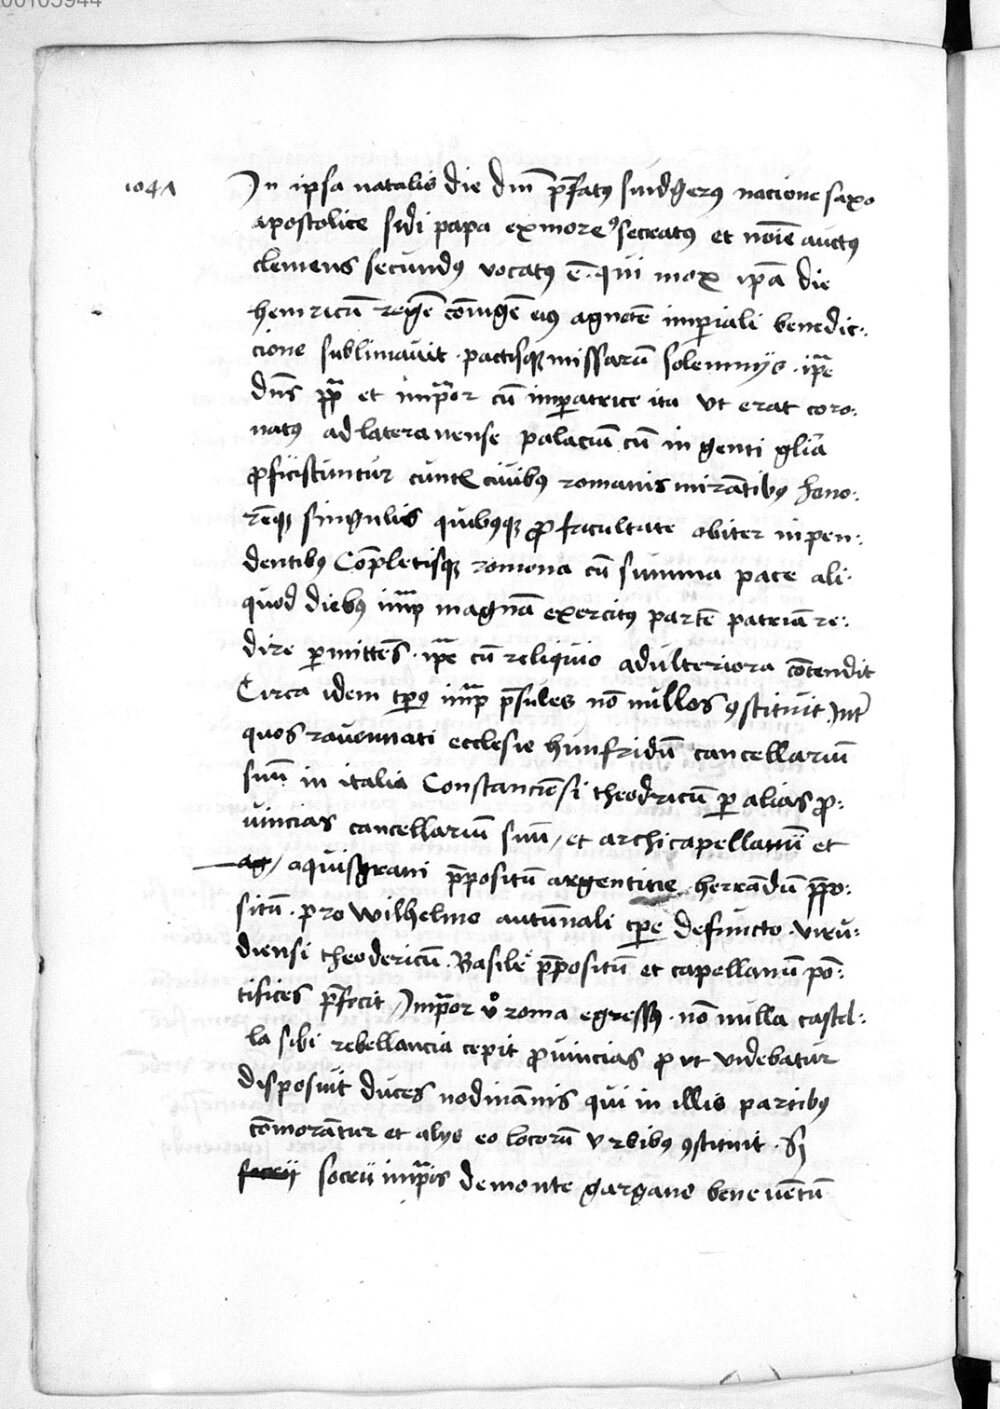 00103944
1047 In ipsa natalis die dnī p̄fatꝰ suidgerꝰ nacione saxo
apostolice sedi papa ex more ꝯsecratꝰ et noīe auctꝰ
clemens secundꝰ vocatꝰ ē · qui mox ipā die
heinricū regē cōiugē eiꝰ agnetē imꝑiali benedic:
cione sublimauit · pactisqꝫ missarū solemnijs · ip̄e
dn̄s pp̄ et imp̄or cū imꝑatrice ita vt erat coro:
natꝰ ad lateranense palaciū cū in genti gl̄ia
ꝓficiscuntur cunctꝭ ciuibꝰ romanis mirātibꝰ hono:
rēqꝫ singulis quibꝰqꝫ ꝓ facultate obiter inpen:
dentibꝰ Cōpletisqꝫ romona cū summa pace ali:
quod diebꝰ imp̄ magnā exercitꝰ partē patriā re:
dire ꝑmittēs · ip̄e cū reliquio ad ulteriora cōtendit
Circa idem tp̄ꝰ imp̄ p̄sules nō nullos ꝯstituit Int̄
quos rauennati ecclesie hunfridū cancellariū
suū in italia Constanciēsi theodricū ꝑ alias ꝓ:
uincias cancellariū suū / et archicapellanū et
ag / aquisgrani p̄positū argentine herrandū p̄po:
sitū · pro wilhelmo autūnali tp̄e defuncto · viru:
diensi theodericū · Basilē p̄positū et capellanū pō:
tifices p̄fecit / Imp̄or v̊ roma egressꝰ · nō nulla castel:
la sibi rebellancia cepit ꝓuincias ꝓ vt videbatur
disposuit duces nodmānis qui in illis partibꝰ
cōmorātur et alijs eo locorū vrbibꝰ ꝯstituit · Sȝ
socrii socrū imp̄is de monte gargano bene uētū